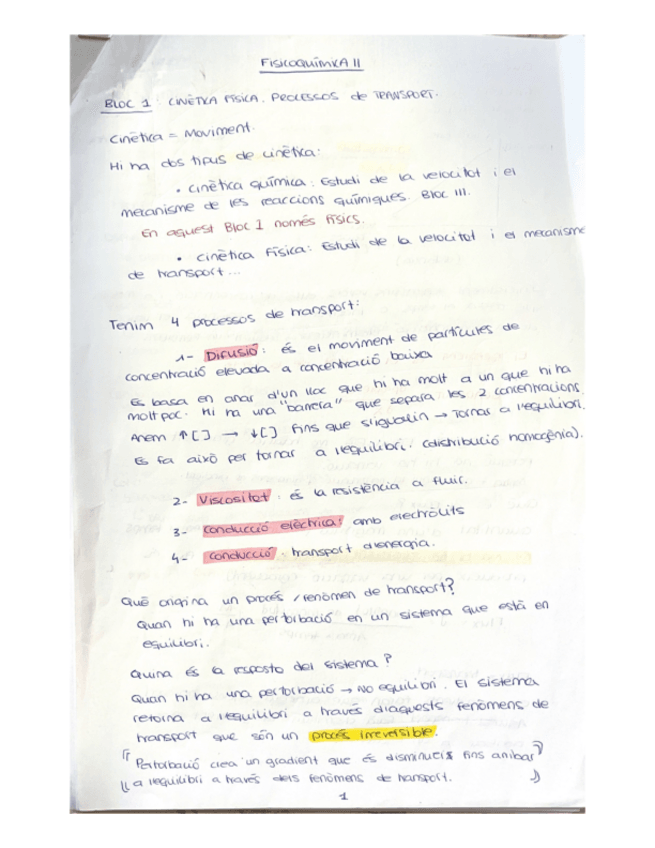 FISICOQUÍMICA II
BLOC 1: CINÈTICA FÍSICA. PROCESSOS de TRANSPORT.
Cinètica = Moviment.
Hi ha dos tipus de cinètica:
• Cinètica química: Estudi de la velocitat i el
mecanisme de les reaccions químiques. Bloc III.
En aquest Bloc 1 només físics.
• Cinètica Física: Estudi de la velocitat i el mecanisme
de transport...
Tenim 4 processos de transport:
1- Difusió: és el moviment de partícules de
concentració elevada a concentració baixa
Es basa en anar d'un lloc que hi ha molt a un que hi ha
molt poc. Hi ha una "barrera" que separa les 2 concentracions.
Anem ↑[] → ↓[] fins que s'igualin → Tornar a l'equilibri.
Es fa això per tornar a l'equilibri. (distribució homogènia).
2- Viscositat: és la resistència a fluir.
3- Conducció elèctrica: amb electròlits
4- Conducció: transport d'energia.
Què origina un procés / fenòmen de transport?
Quan hi ha una pertorbació en un sistema que està en
equilibri.
Quina és la resposta del sistema?
Quan hi ha una pertorbació → NO equilibri. El sistema
retorna a l'equilibri a través d'aquests fenòmens de
transport que són un procés irreversible.
Pertorbació crea un gradient que és disminueix fins arribar
a l'equilibri a través dels fenòmens de transport.
1